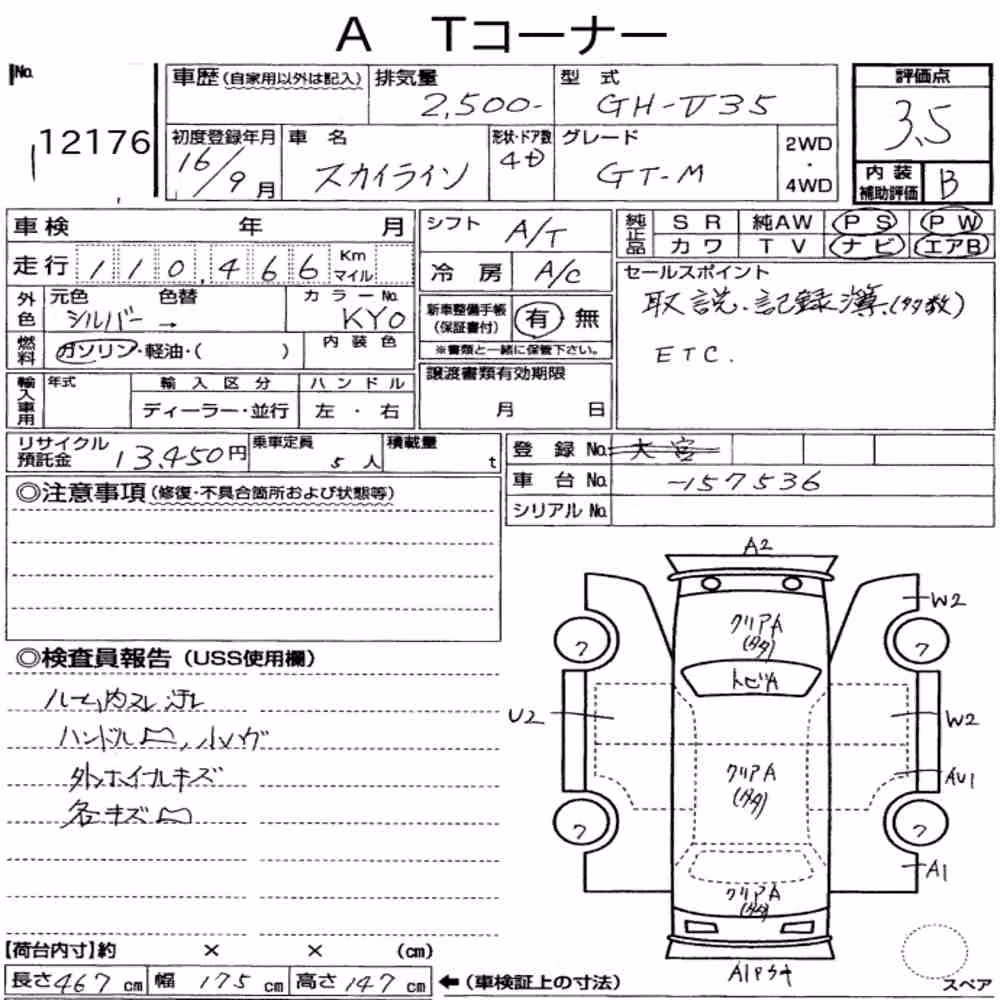 A Tコーナー
No.
12176
車歴(自家用以外は記入)
排気量
2,500-
型式
GH-V35
初度登録年月
16/9月
車名
スカイライン
形状・ドア数
4D
グレード
GT-M
2WD
・
4WD
評価点
3.5
内装
補助評価
B
車検 年 月
走行 110,466 Km
マイル
外色
元色 色替
シルバー →
カラーNo.
KYO
燃料
ガソリン・軽油・( )
内装色
輸入車用
年式
輸入区分
ディーラー・並行
ハンドル
左・右
シフト
A/T
冷房
A/C
新車整備手帳
(保証書付)
有 無
※書類と一緒に保管下さい。
譲渡書類有効期限
月 日
純正品
SR 純AW PS PW
カワ TV ナビ エアB
セールスポイント
取説・記録簿(多数)
ETC.
リサイクル
預託金
13,450円
乗車定員
5人
積載量
t
登録No. 大宮
車台No. -157536
シリアルNo.
◎注意事項(修復・不具合箇所および状態等)
◎検査員報告(USS使用欄)
ルーム内スレ汚レ
ハンドル, 小ハゲ
外,ホイルキズ
各キズ
A2
W2
クリアA
フ
フ
トビA
U2
W2
クリアA
AU1
フ
フ
A1
クリアA
スペア
【荷台内寸】約 × × (cm)
長さ467cm 幅175cm 高さ147cm
←(車検証上の寸法)